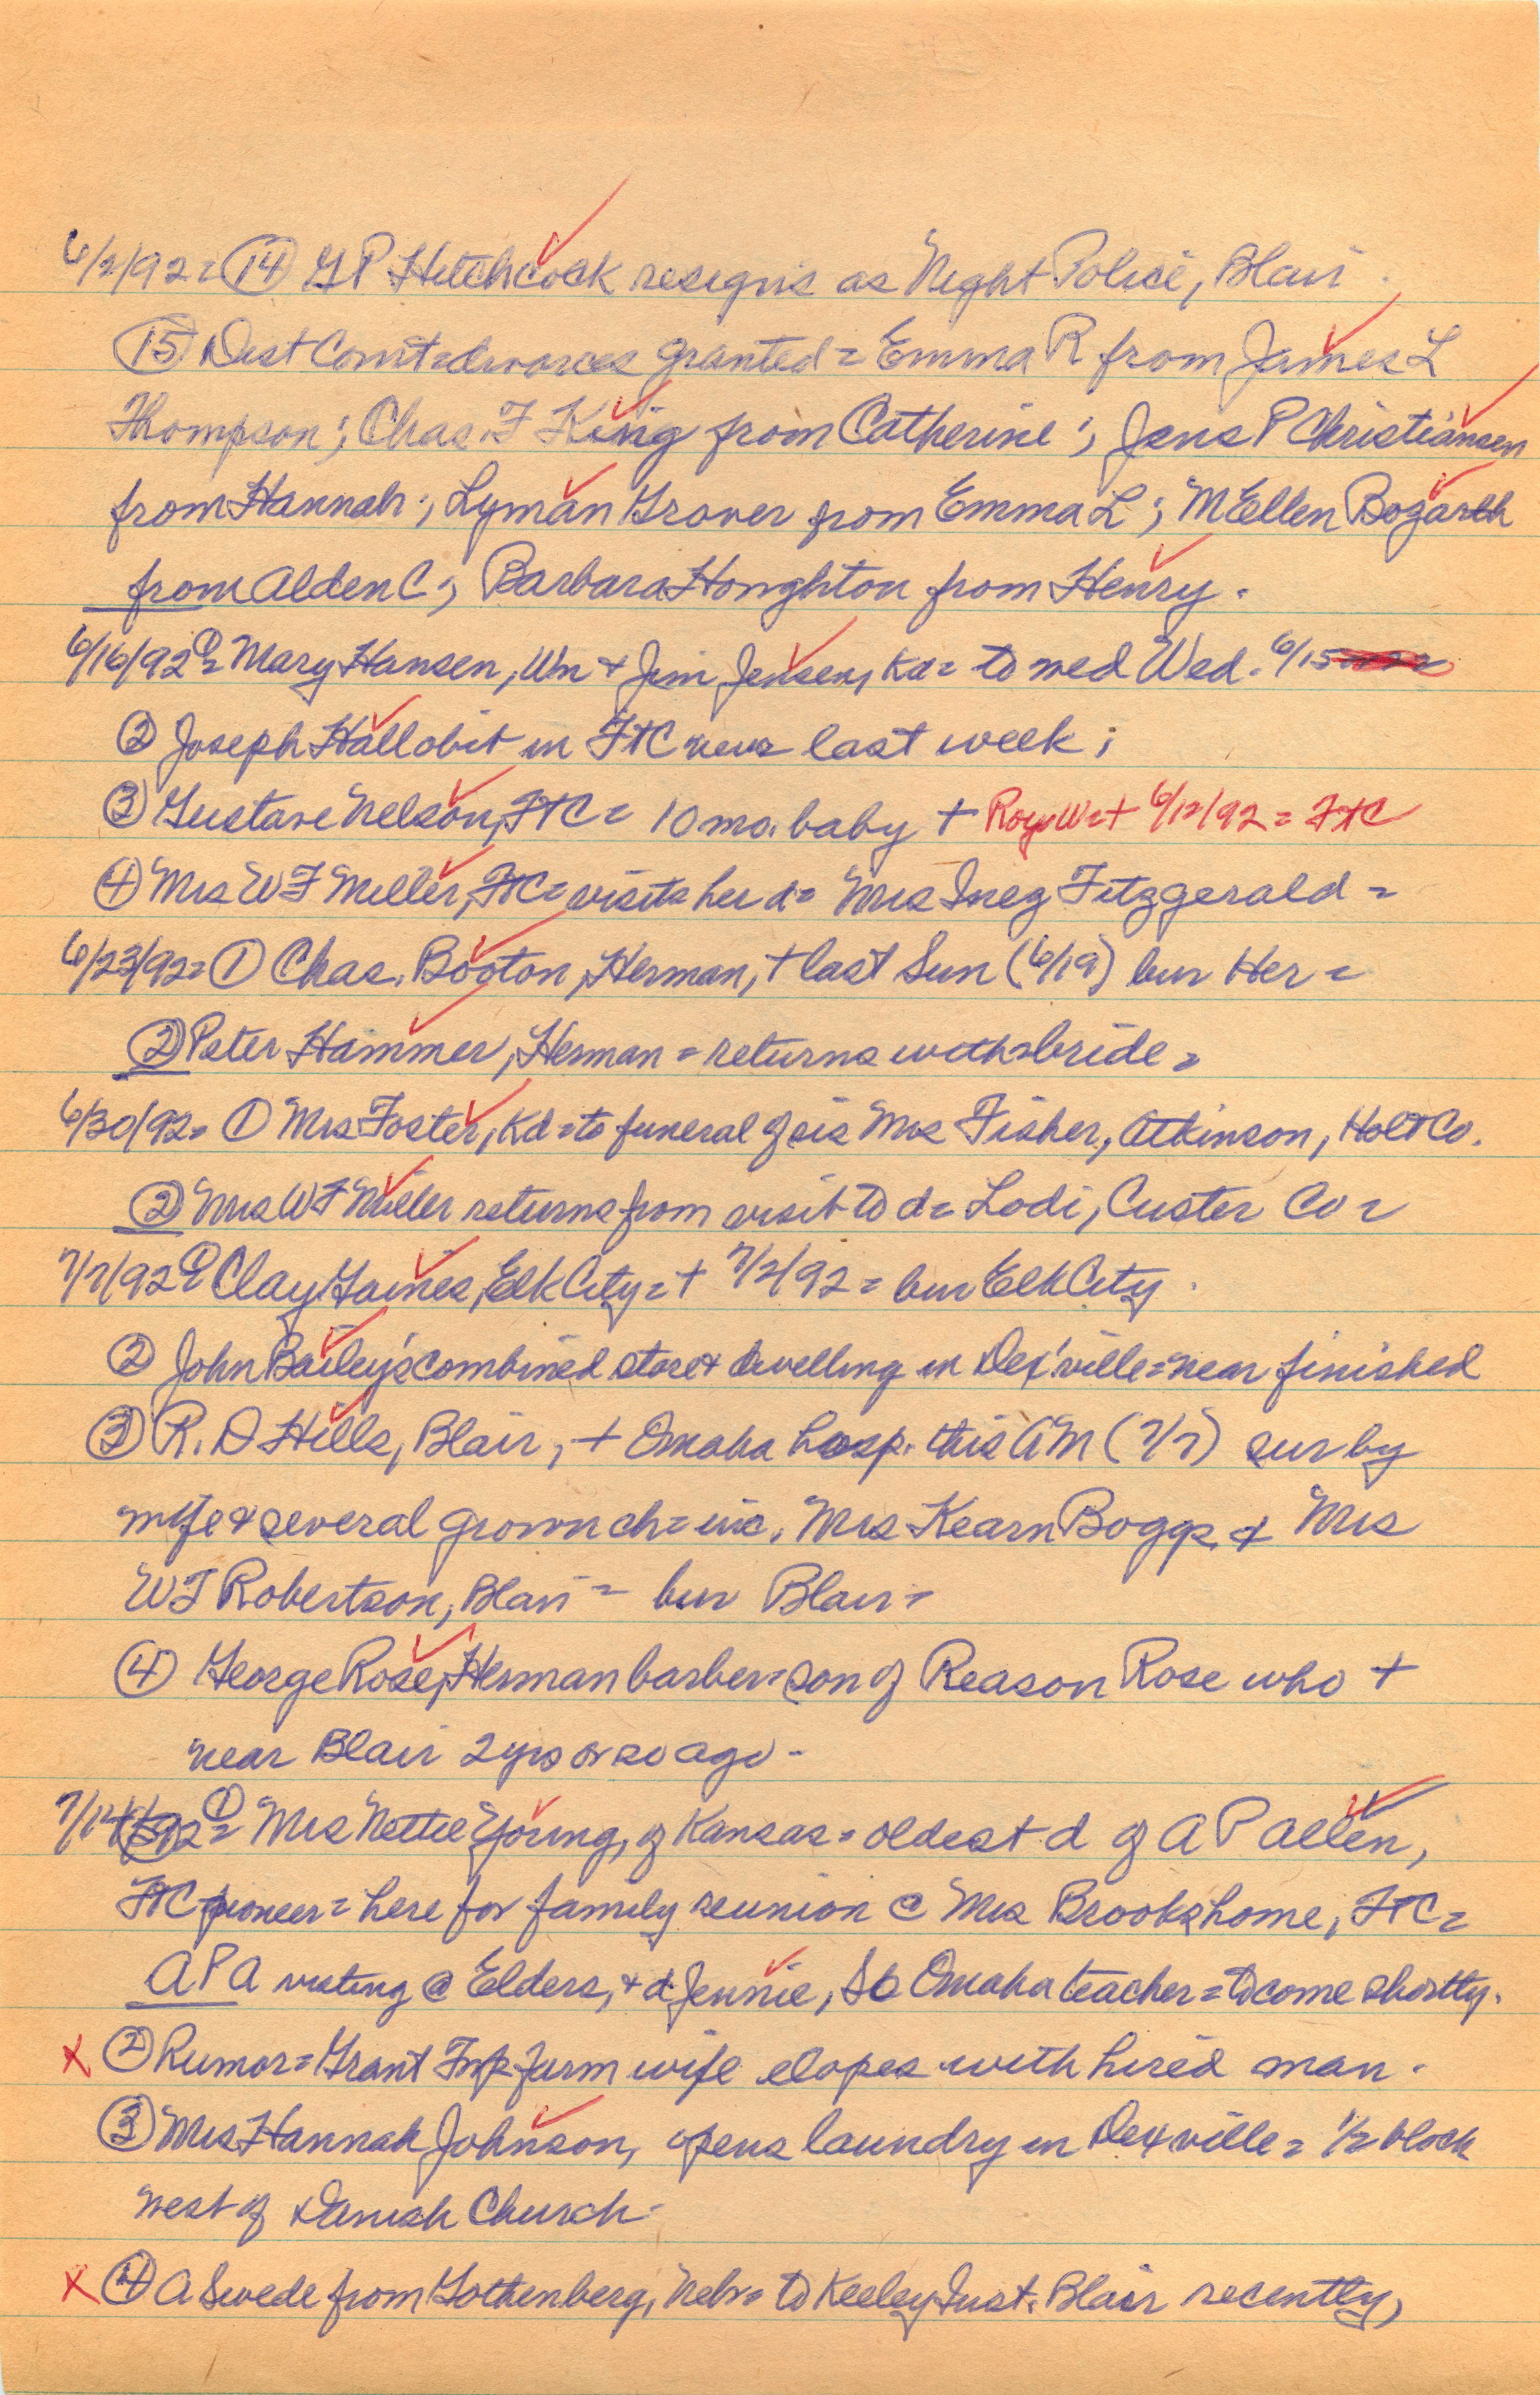 6/2/92= (14) G P Hitchcock resigns as Night Police, Blair.
(15) Dist Court=divorces granted= Emma R from James L
Thompson; Chas. F King from Catherine; Jens P Christiansen
from Hannah; Lyman Grover from Emma L; M Ellen Bogarth
from Alden C; Barbara Houghton from Henry.
6/16/92 (1)= Mary Hansen, Wm + Jim Jensen, Kd= to wed Wed. 6/15
(2) Joseph Hall obit in FtC news last week;
(3) Gustave Nelson, FtC= 10 mo. baby + Roy W=+ 6/12/92= FtC
(4) Mrs W F Miller, FtC= visits her d= Mrs Inez Fitzgerald=
6/23/92= (1) Chas. Booton, Herman, + last Sun (6/19) bur Her=
(2) Peter Hammer, Herman= returns with bride=
6/30/92= (1) Mrs Foster, Kd=to funeral of sis Mrs Fisher, Atkinson, Holt Co.
(2) Mrs W F Miller returns from visit to d= Lodi, Custer Co=
7/7/92 (1)= Clay Gaines, Elk City=+ 7/2/92= bur Elk City.
(2) John Bailey's combined store+ dwelling in Dex'ville=near finished
(3) R. D Hills, Blair, + Omaha hosp. this AM (7/7) sur by
wife & several grown ch= inc. Mrs Kearn Boggs, & Mrs
W J Robertson, Blair= bur Blair=
(4) George Rose, Herman barber=son of Reason Rose who +
near Blair 2 yrs or so ago-
7/14/92 (1)= Mrs Nettie Young, of Kansas=oldest d of A P Allen,
FtC pioneer= here for family reunion @ Mrs Brooks home, FtC=
A P A visiting @ Elders, + d Jennie, So Omaha teacher=to come shortly.
x (2) Rumor=Grant Twp farm wife elopes with hired man.
(3) Mrs Hannah Johnson, opens laundry in Dexville= 1/2 block
west of Danish Church-
x (4) A Swede from Gothenberg, Nebr= to Keeley Inst. Blair recently,